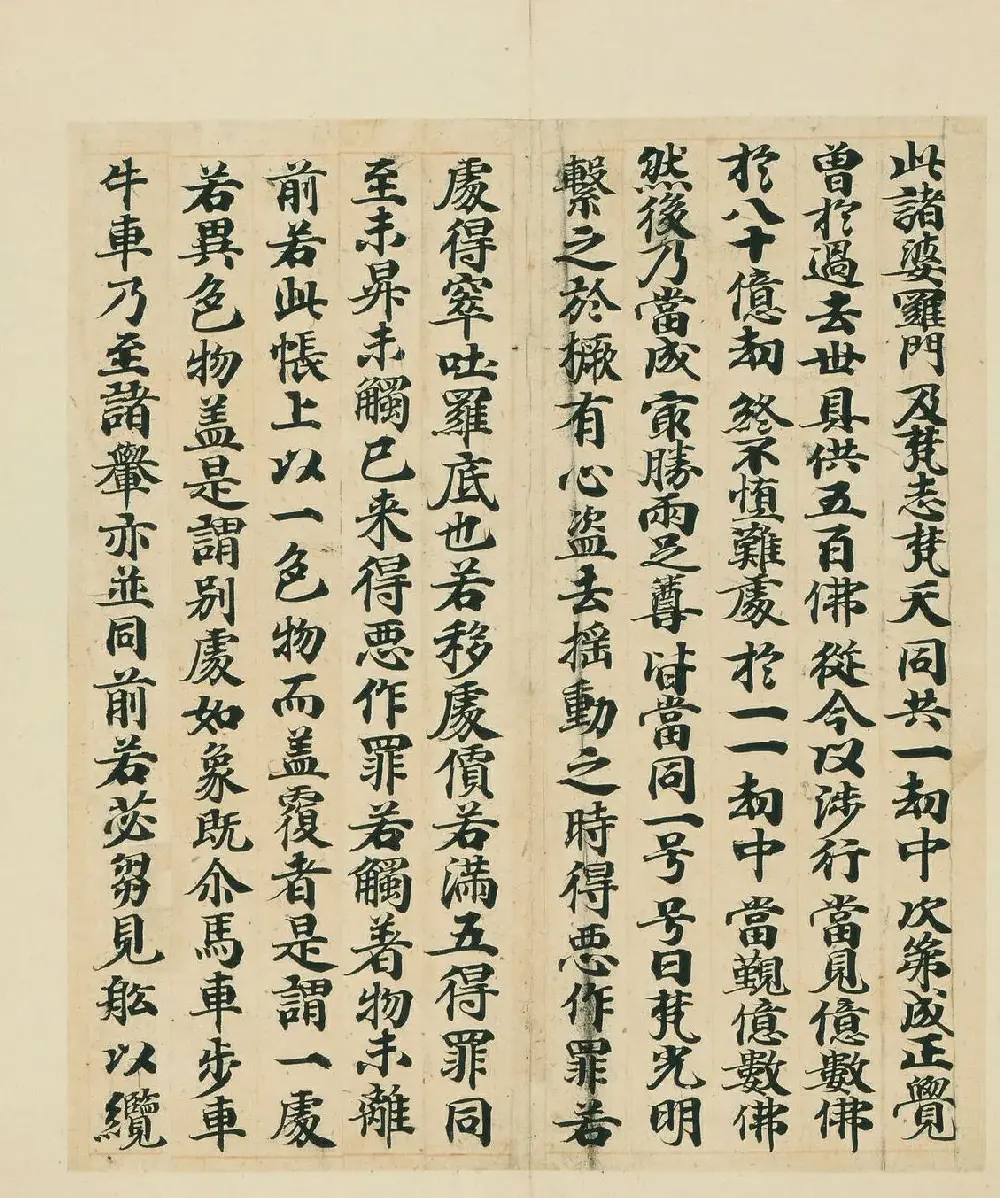 此諸婆羅門及梵志梵天同共一劫中次第成正覺
曾於過去世具供五百佛從今以涉行當見億數佛
於八十億劫終不慎難處於一一劫中當觀億數佛
然後乃當成㝡勝兩足尊皆當同一号号曰梵光明
繫之於橛有心盜去摇動之時得惡作罪若
處得窣吐羅底也若移處價若滿五得罪同
至未昇未觸已来得惡作罪若觸著物未離
前若此帳上以一色物而盖覆者是謂一處
若異色物盖是謂别處如象既尒馬車步車
牛車乃至諸轝亦並同前若苾芻見舩以纜